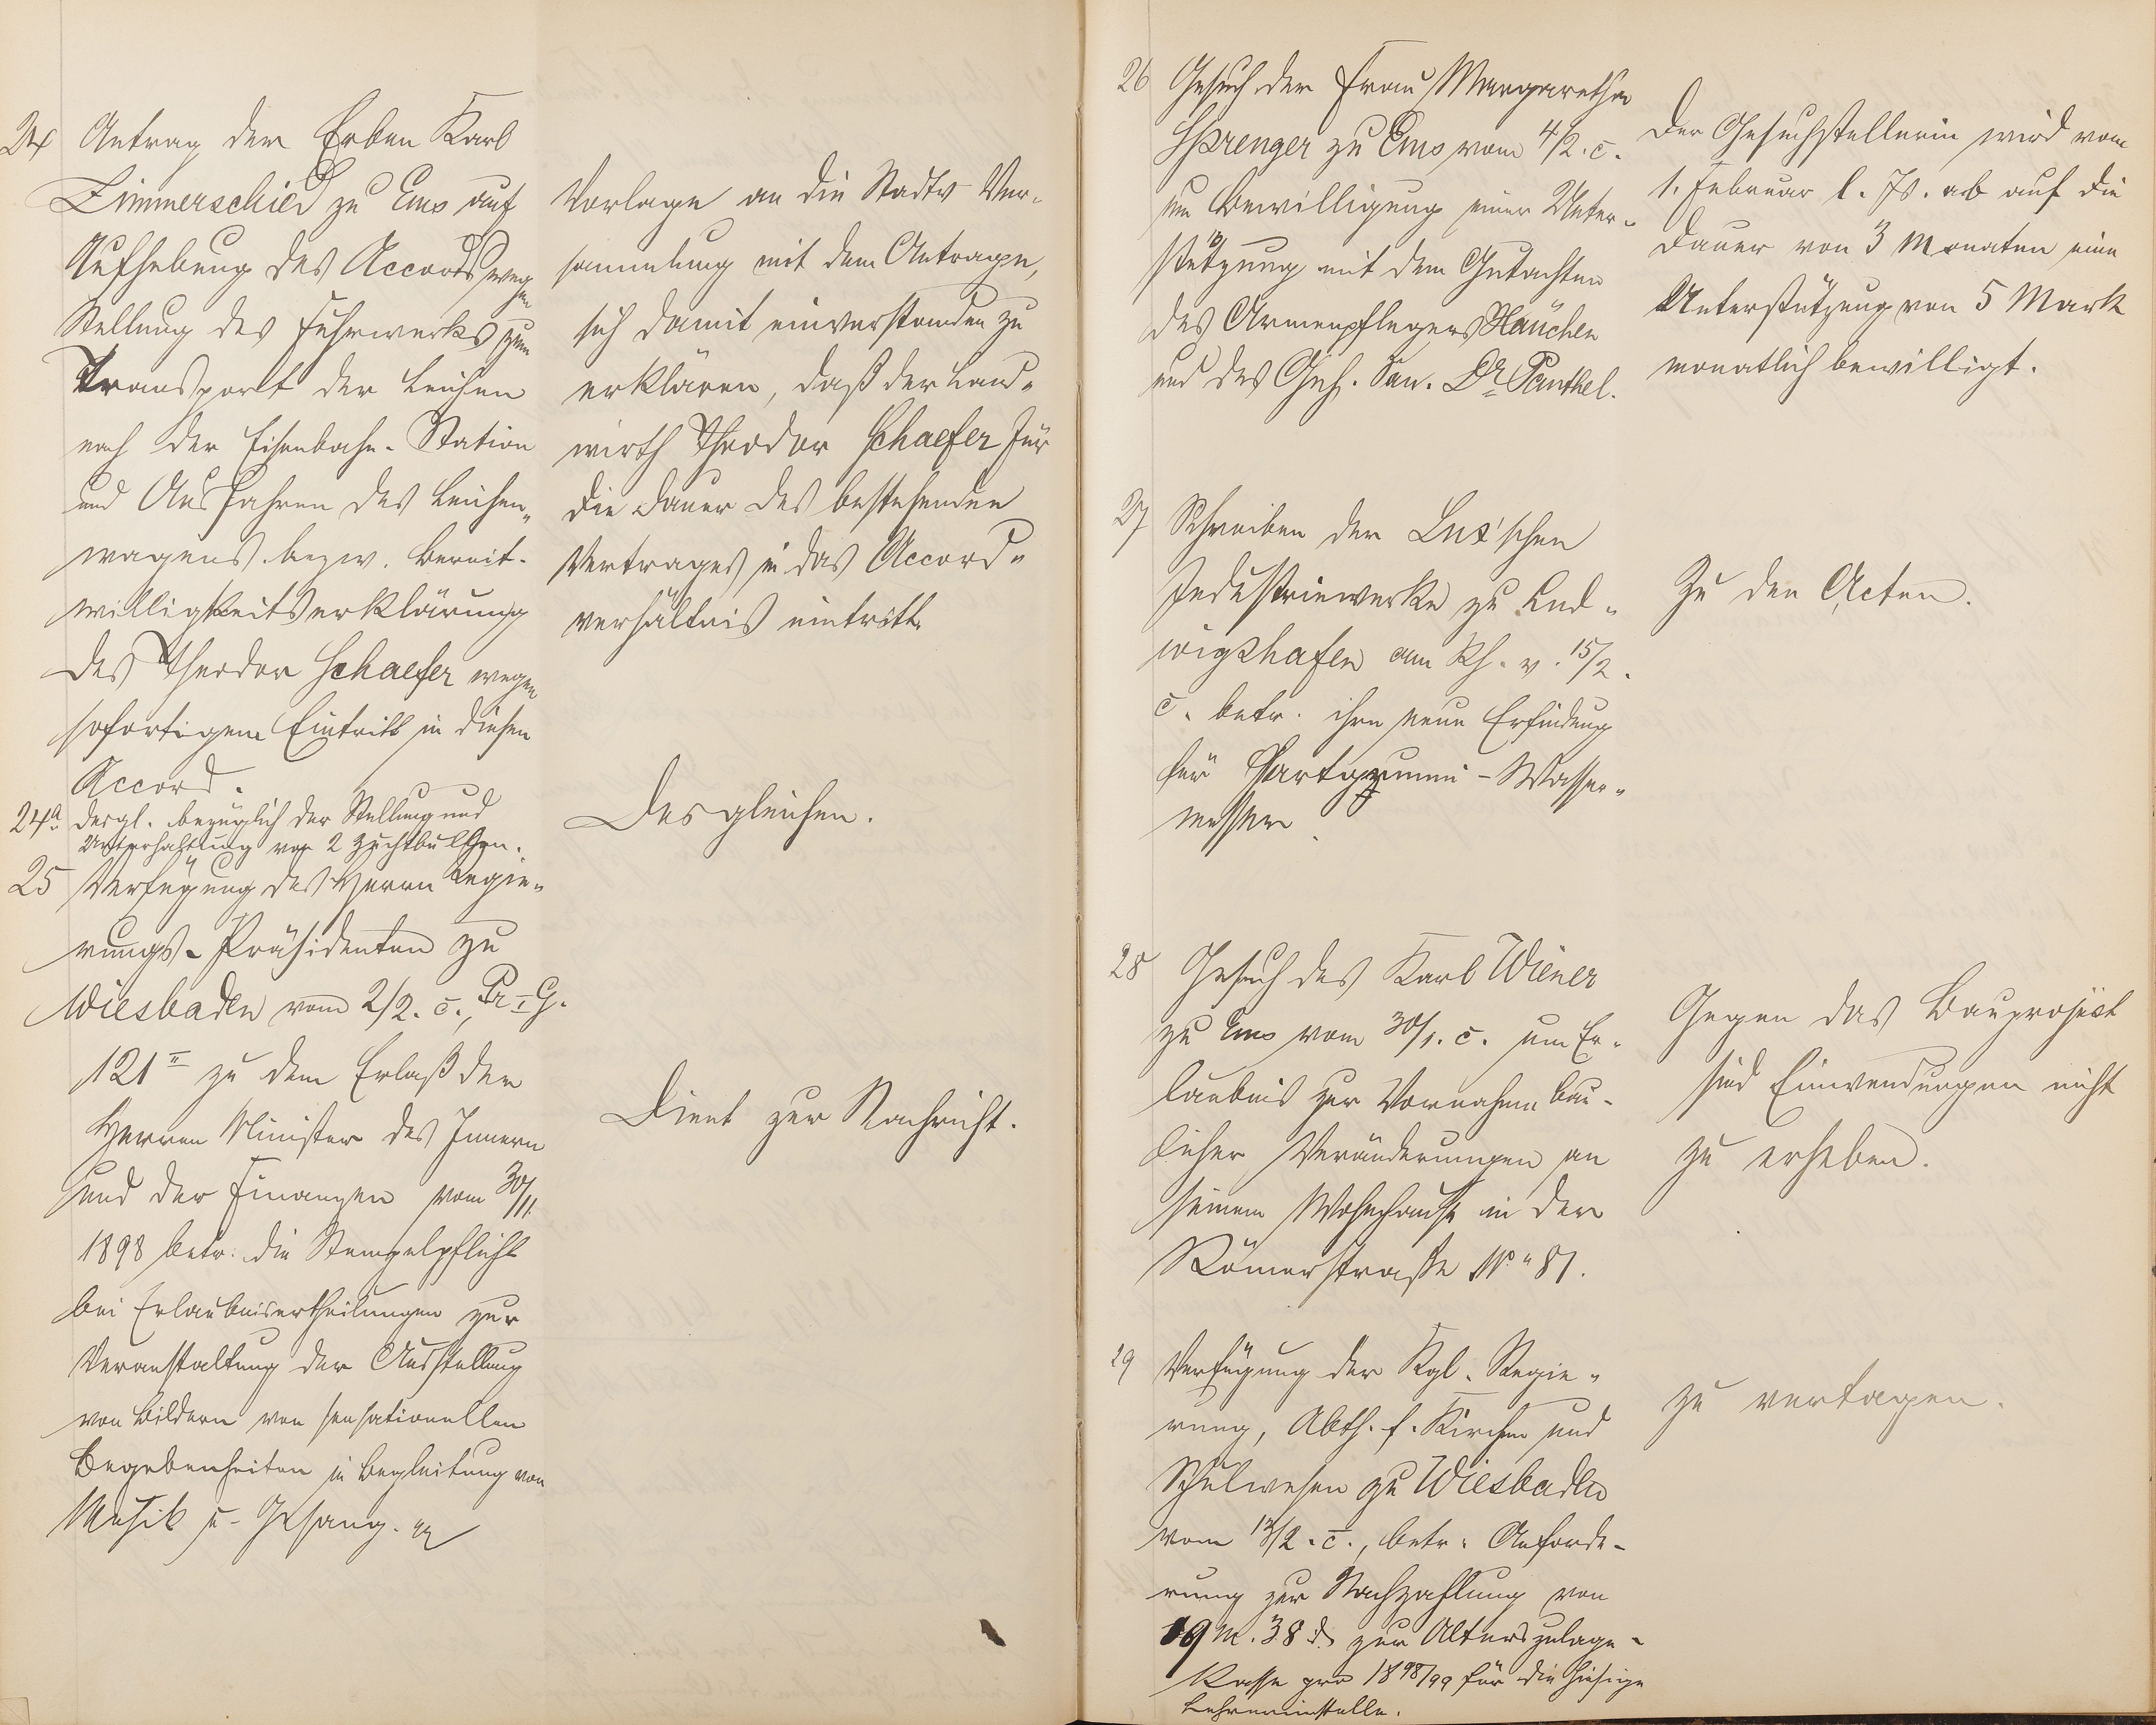 24 Antrag der Erben Karl
Zimmerschied zu Ems auf
Aufhebung des Accords wegen
Stellung des Fuhrwerks zum
Transport der Leichen
nach der Eisenbahn-Station
und Ausfahren des Leichen-
wagens bezw. Bereit-
willigkeitserklärung
des Theodor Schaefer wegen
sofortigem Eintritt in diesen
Accord.
Vorlage an die Stadtv Ver-
sammlung mit dem Antrage,
sich damit einverstanden zu
erklären, daß der Land-
wirth Theodor Schaefer für
die Dauer des bestehenden
Vertrages in das Accord-
verhältniß eintritt.
24a. desgl. bezüglich der Stellung und
Unterhaltung von 2 Zuchtbullen.
Desgleichen.
25 Verfügung des Herrn Regie-
rungs-Präsidenten zu
Wiesbaden vom 2/2. c., Pr. I. G.
121 II zu dem Erlaß der
Herren Minister des Innern
und der Finanzen vom 30/11.
1898 betr. die Stempelpflicht
bei Erlaubnisertheilungen zur
Veranstaltung der Ausstellung
von Bildern von sensationellen
Begebenheiten in Begleitung von
Musik u. Gesang.
Dient zur Nachricht.
26 Gesuch der Frau Margaretha
Sprenger zu Ems vom 4/2. c.
um Bewilligung einer Unter-
stützung mit dem Gutachten
des Armenpflegers Häuchen
und des Geh. San. Dr. Panthel.
Der Gesuchstellerin wird vom
1. Februar l. Js. ab auf die
Dauer von 3 Monaten eine
Unterstützung von 5 Mark
monatlich bewilligt.
27 Schreiben der Lux'schen
Industriewerke zu Lud-
wigshafen am Rh. v. 15/2.
c. betr. ihre neue Erfindung
für Hartgummi-Wasser-
messer
Zu den Acten.
28 Gesuch des Karl Wiener
zu Ems vom 30/1. c. um Er-
laubnis zur Vornahme bau-
licher Veränderungen an
seinem Wohnhause in der
Römerstraße No 81.
Gegen das Bauproject
sind Einwendungen nicht
zu erheben.
29 Verfügung der Kgl. Regie-
rung, Abth. f. Kirchen und
Schulwesen zu Wiesbaden
vom 13/2. c., betr. Anforde-
rung zur Nachzahlung von
19 M. 38 d. zur Alterszulage-
Kasse pro 1898/99 für die hiesige
Lehrerinstelle.
zu vertagen.